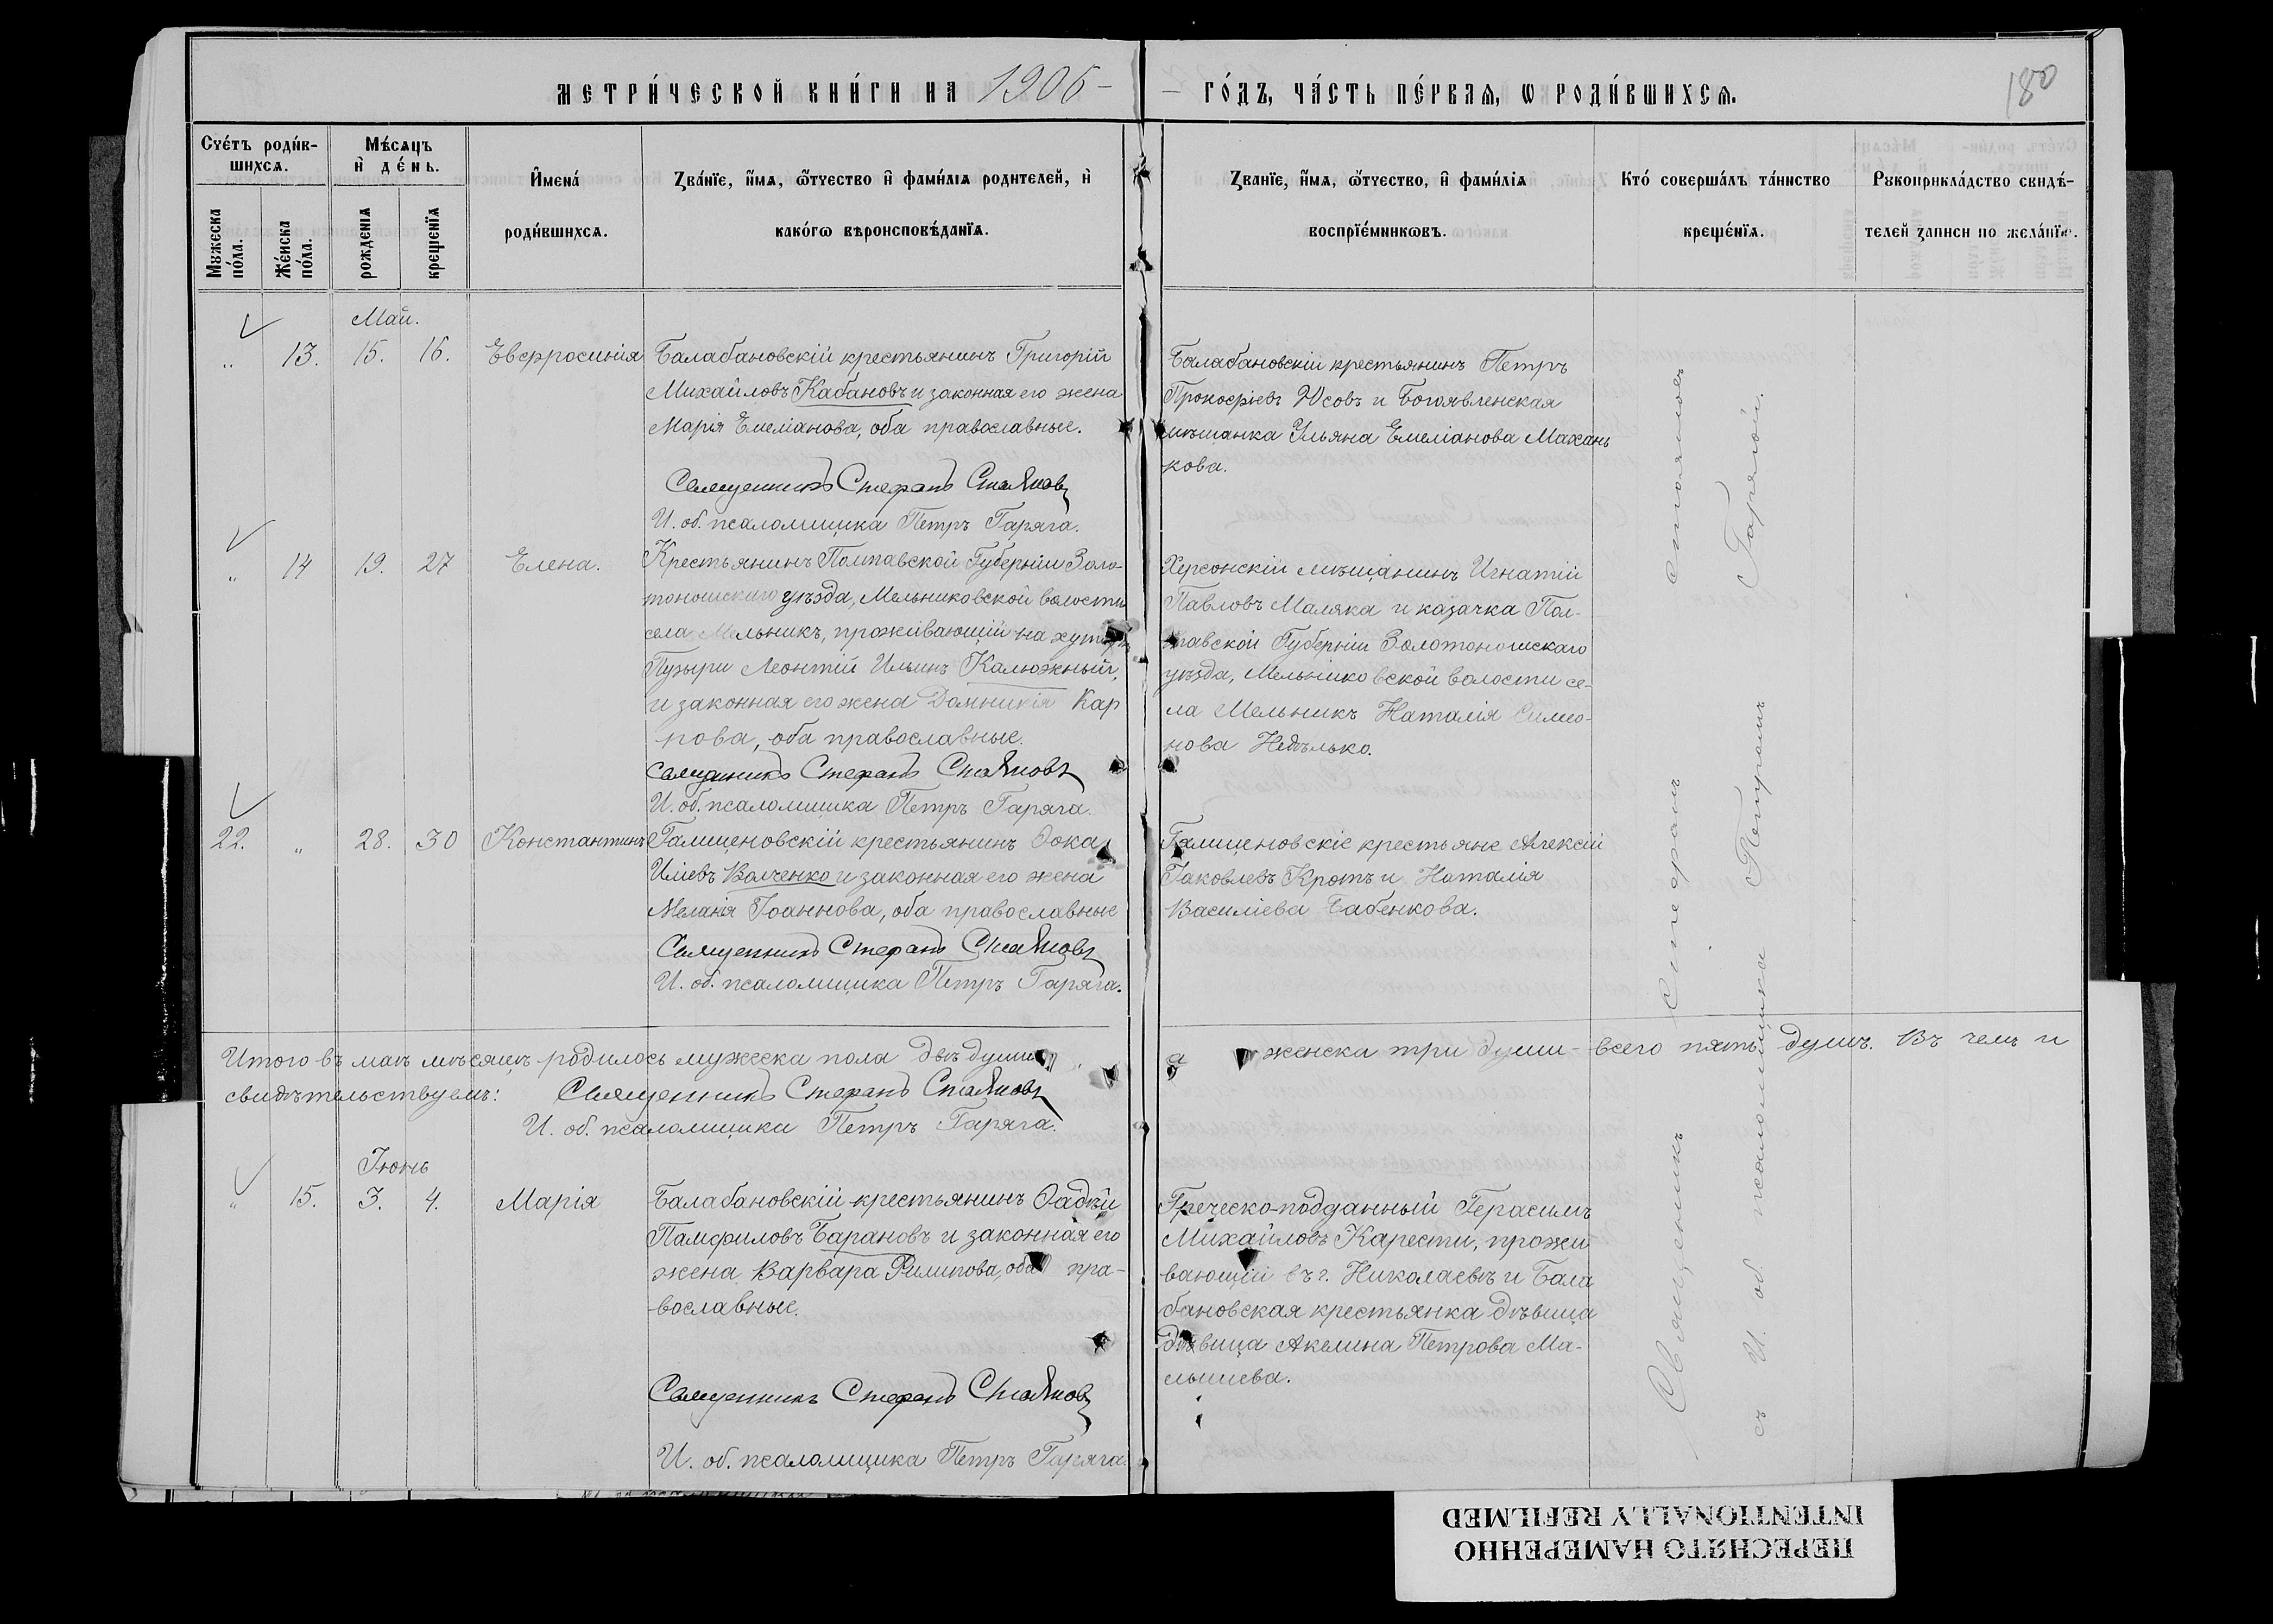 МЕТРИ́ЧЕСКОЙ КНИ́ГИ НА 1906 -
- ГО́ДЪ, ЧА́СТЬ ПЕ́РВАѦ, Ѡ РОДИ́ВШИХСѦ.
180
Сче́тъ роди́в-
шихсѧ.
Мѣ́сѧцъ
и҆ де́нь.
Мꙋжеска
по́ла.
Же́нска
по́ла.
рожденїѧ
крещенїѧ
И҆мена́
роди́вшихсѧ.
Зва́нїе, и҆́мѧ, ѻ҆́тчество и҆ фами́лїѧ родителей, и҆
како́гѡ вѣроисповѣ́данїѧ.
Зва́нїе, и҆́мѧ, ѻ҆́тчество, и҆ фами́лїѧ
воспрїе́мникѡвъ.
Кто́ соверша́лъ та́инство
креще́нїѧ.
Рꙋкоприкла́дство свидѣ́-
телей записи по жела́нїю.
Май.
" 13. 15. 16. Евфросинія
Балабановскій крестьянинъ Григорій
Михайловъ Кабановъ и законная его жена
Марія Емеліанова, оба православные.
Священникъ Стефанъ Стояновъ
И. об. псаломщика Петръ Гаряга.
Балабановскій крестьянинъ Петръ
Прокофіевъ Юсовъ и Богоявленская
мѣщанка Ульяна Емеліанова Махонь
кова.
" 14 19. 27 Елена.
Крестьянинъ Полтавской Губерніи Золо-
тоношскаго уѣзда, Мельниковской волости
села Мельникъ, проживающій на
Пузыри Леонтій Ильинъ Калюжный,
и законная его жена Домникія Кар
пова, оба православные.
Священникъ Стефанъ Стояновъ
И. об. псаломщика Петръ Гаряга.
Херсонскій мѣщанинъ Игнатій
Павловъ Маляка и казачка Пол-
тавской Губерніи Золотоношскаго
уѣзда, Мельниковской волости се-
ла Мельникъ Наталія Симео-
нова Недѣлько.
22. " 28. 30 Константинъ
Галициновскій крестьянинъ Ѳока
Иліевъ Волченко и законная его жена
Меланія Іоаннова, оба православные
Священникъ Стефанъ Стояновъ
И. об. псаломщика Петръ Гаряга.
Галициновскіе крестьяне Алексій
Іаковлевъ Кротъ и Наталія
Василіева Бабенкова.
Итого въ маѣ мѣсяцѣ родилось мужеска пола двѣ души, а женска три души - всего пять душъ. Въ чемъ и
свидѣтельствуемъ: Священникъ Стефанъ Стояновъ
И. об. псаломщика Петръ Гаряга.
Іюнь
" 15. 3. 4. Марія
Балабановскій крестьянинъ Ѳадѣй
Памфиловъ Барановъ и законная его
жена Варвара Филипова, оба пра-
вославные.
Священникъ Стефанъ Стояновъ
И. об. псаломщика Петръ Гаряга.
Греческо-подданный Герасимъ
Михайловъ Карести, прожи
вающій въ г. Николаевѣ и Бала
бановская крестьянка дѣвица
дѣвица Акелина Петрова Ма-
лышева.
Священникъ Стефанъ Стояновъ
съ И. об. псаломщика Петромъ Гарягой.
ПЕРЕСНЯТО НАМЕРЕННО
INTENTIONALLY REFILMED